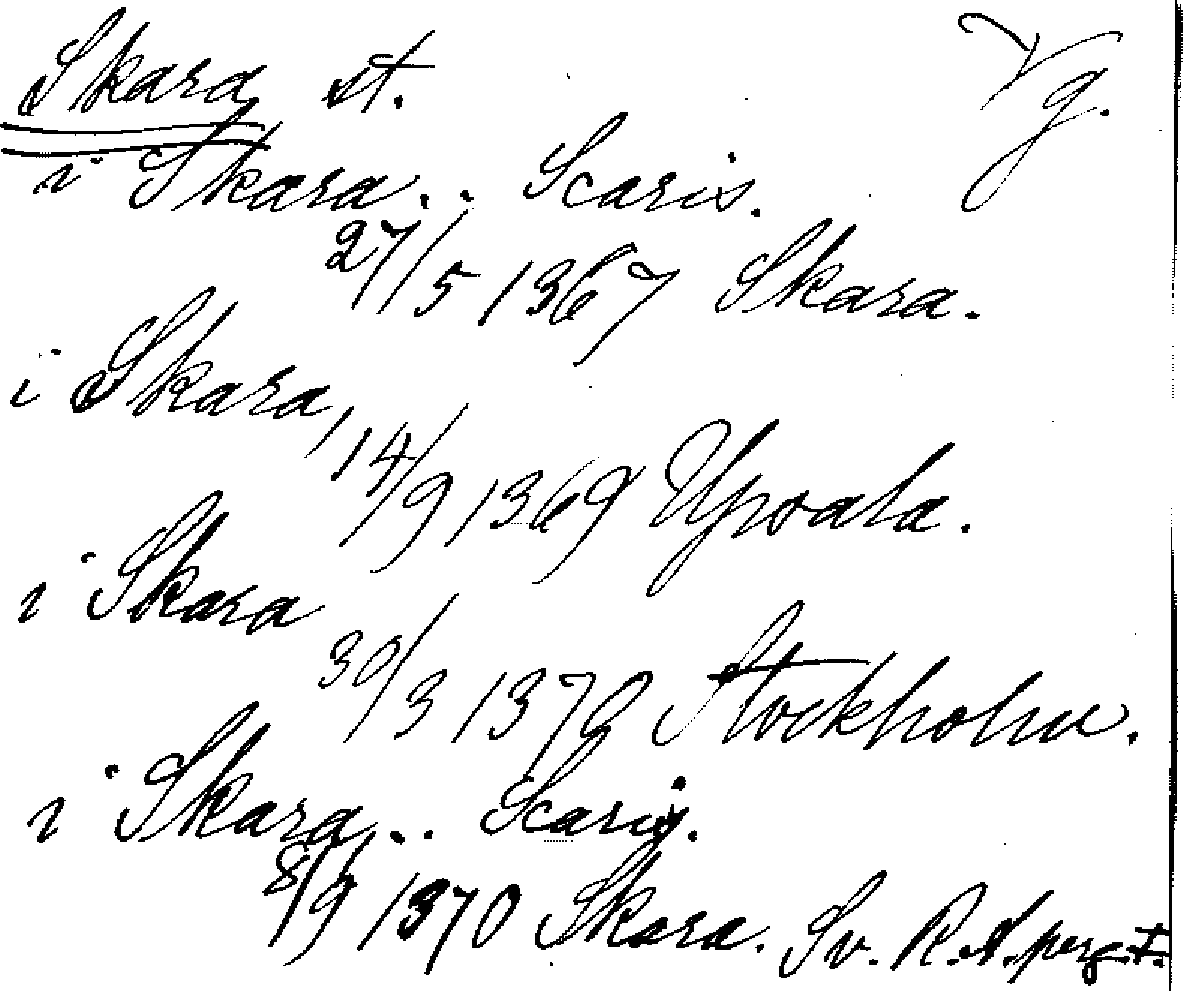 Skara st. Vg.
i Skara . . Scaris.
27/5 1367 Skara.
i Skara,
14/9 1369 Upsala.
i Skara
30/3 1370 Stockholm.
i Skara . . Scaris.
8/9 1370 Skara. Sv. R.A. perg.